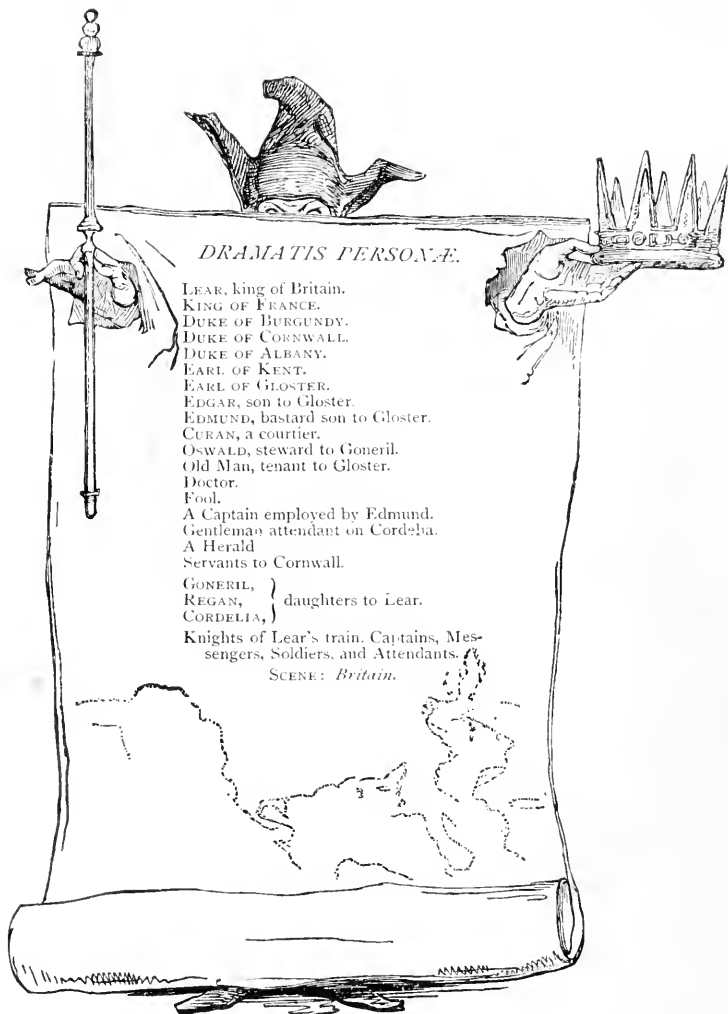 DRAMATIS PERSONÆ.
LEAR, king of Britain.
KING OF FRANCE.
DUKE OF BURGUNDY.
DUKE OF CORNWALL.
DUKE OF ALBANY.
EARL OF KENT.
EARL OF GLOSTER.
EDGAR, son to Gloster.
EDMUND, bastard son to Gloster.
CURAN, a courtier.
OSWALD, steward to Goneril.
Old Man, tenant to Gloster.
Doctor.
Fool.
A Captain employed by Edmund.
Gentleman attendant on Cordelia.
A Herald
Servants to Cornwall.
GONERIL,
REGAN, } daughters to Lear.
CORDELIA,
Knights of Lear's train. Captains, Mes-
sengers, Soldiers, and Attendants.
SCENE: Britain.